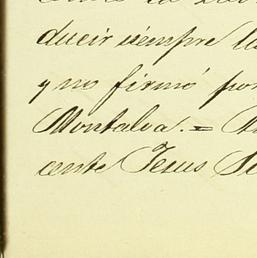 ducir siempre la
y no firmó por
Montalva. =
cente Jesus Se